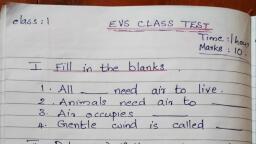 class: 1
EVS CLASS TEST
Time: 1 hour
Marks: 10.
I Fill in the blanks.
1. All ___ need air to live.
2. Animals need air to ___
3. Air occupies ___
4. Gentle wind is called ___